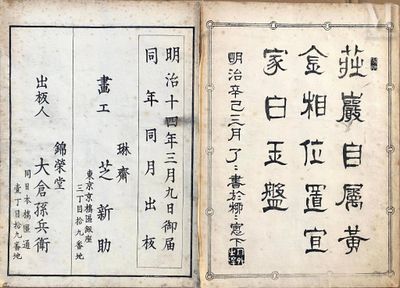 莊嚴自屬黃
金相位置宜
家白玉盤
明治辛巳三月 了〻書於柳〻窓下
明治十四年三月九日御届
同年同月出板
畫工
琳齋
東京京橋區銀座
三丁目拾九番地
芝新助
出板人
錦榮堂
大倉孫兵衛
同日本橋區通
壹丁目拾九番地